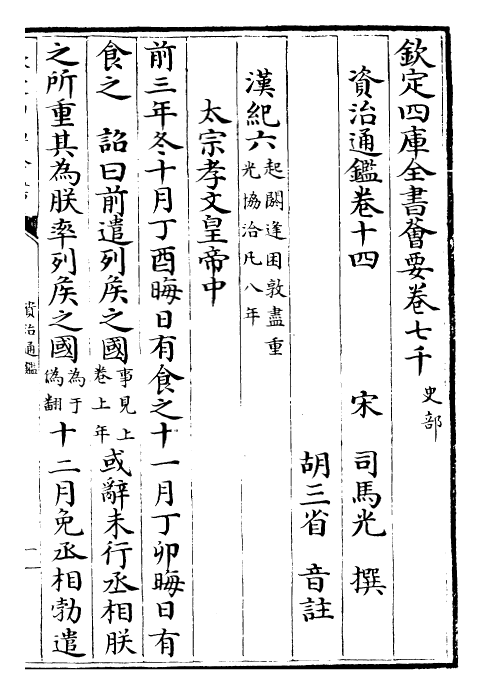 欽定四庫全書薈要卷七千 史部
資治通鑑卷十四 宋 司馬光 撰
胡三省 音註
漢紀六 起閼逢困敦盡重光協洽凡八年
太宗孝文皇帝中
前三年冬十月丁酉晦日有食之十一月丁卯晦日有
食之 詔曰前遣列矦之國事見上卷上年或辭未行丞相朕
之所重其為朕率列矦之國為于偽翻十二月免丞相勃遣
資治通鑑